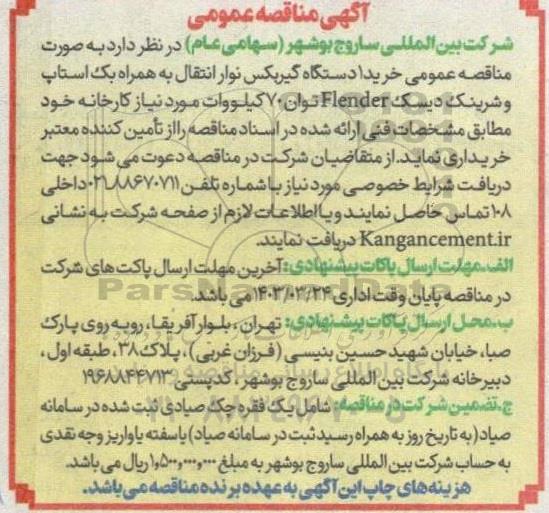 آگهی مناقصه عمومی
شرکت بین المللی ساروج بوشهر (سهامی عام) در نظر دارد به صورت
مناقصه عمومی خرید ۱ دستگاه گیربکس نوار انتقال به همراه بک استاپ
و شرینک دیسک Flender توان ۷۰ کیلووات مورد نیاز کارخانه خود
مطابق مشخصات فنی ارائه شده در اسناد مناقصه را از تأمین کننده معتبر
خریداری نماید. از متقاضیان شرکت در مناقصه دعوت می شود جهت
دریافت شرایط خصوصی مورد نیاز با شماره تلفن ۰۲۱-۸۸۶۷۰۷۱۱ داخلی
۱۰۸ تماس حاصل نمایند و یا اطلاعات لازم از صفحه شرکت به نشانی
Kangancement.ir دریافت نمایند.
الف-مهلت ارسال پاکات پیشنهادی: آخرین مهلت ارسال پاکت های شرکت
در مناقصه پایان وقت اداری ۱۴۰۳/۰۳/۲۴ می باشد.
ب-محل ارسال پاکات پیشنهادی: تهران، بلوار آفریقا، روبه روی پارک
صبا، خیابان شهید حسین بنیسی (فرزان غربی)، پلاک ۳۸، طبقه اول،
دبیرخانه شرکت بین المللی ساروج بوشهر، کدپستی ۱۹۶۸۸۴۴۷۱۳
ج-تضمین شرکت در مناقصه: شامل یک فقره چک صیادی ثبت شده در سامانه
صیاد (به تاریخ روز به همراه رسید ثبت در سامانه صیاد) یا سفته یا واریز وجه نقدی
به حساب شرکت بین المللی ساروج بوشهر به مبلغ ۱,۵۰۰,۰۰۰,۰۰۰ ریال می باشد.
هزینه های چاپ این آگهی به عهده برنده مناقصه می باشد.
ParsNamadData